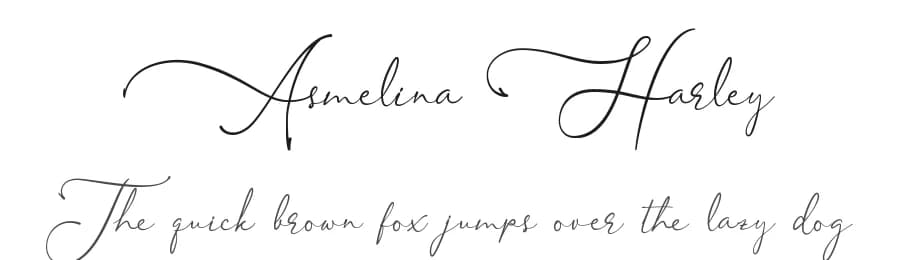 Asmelina Harley
The quick brown fox jumps over the lazy dog